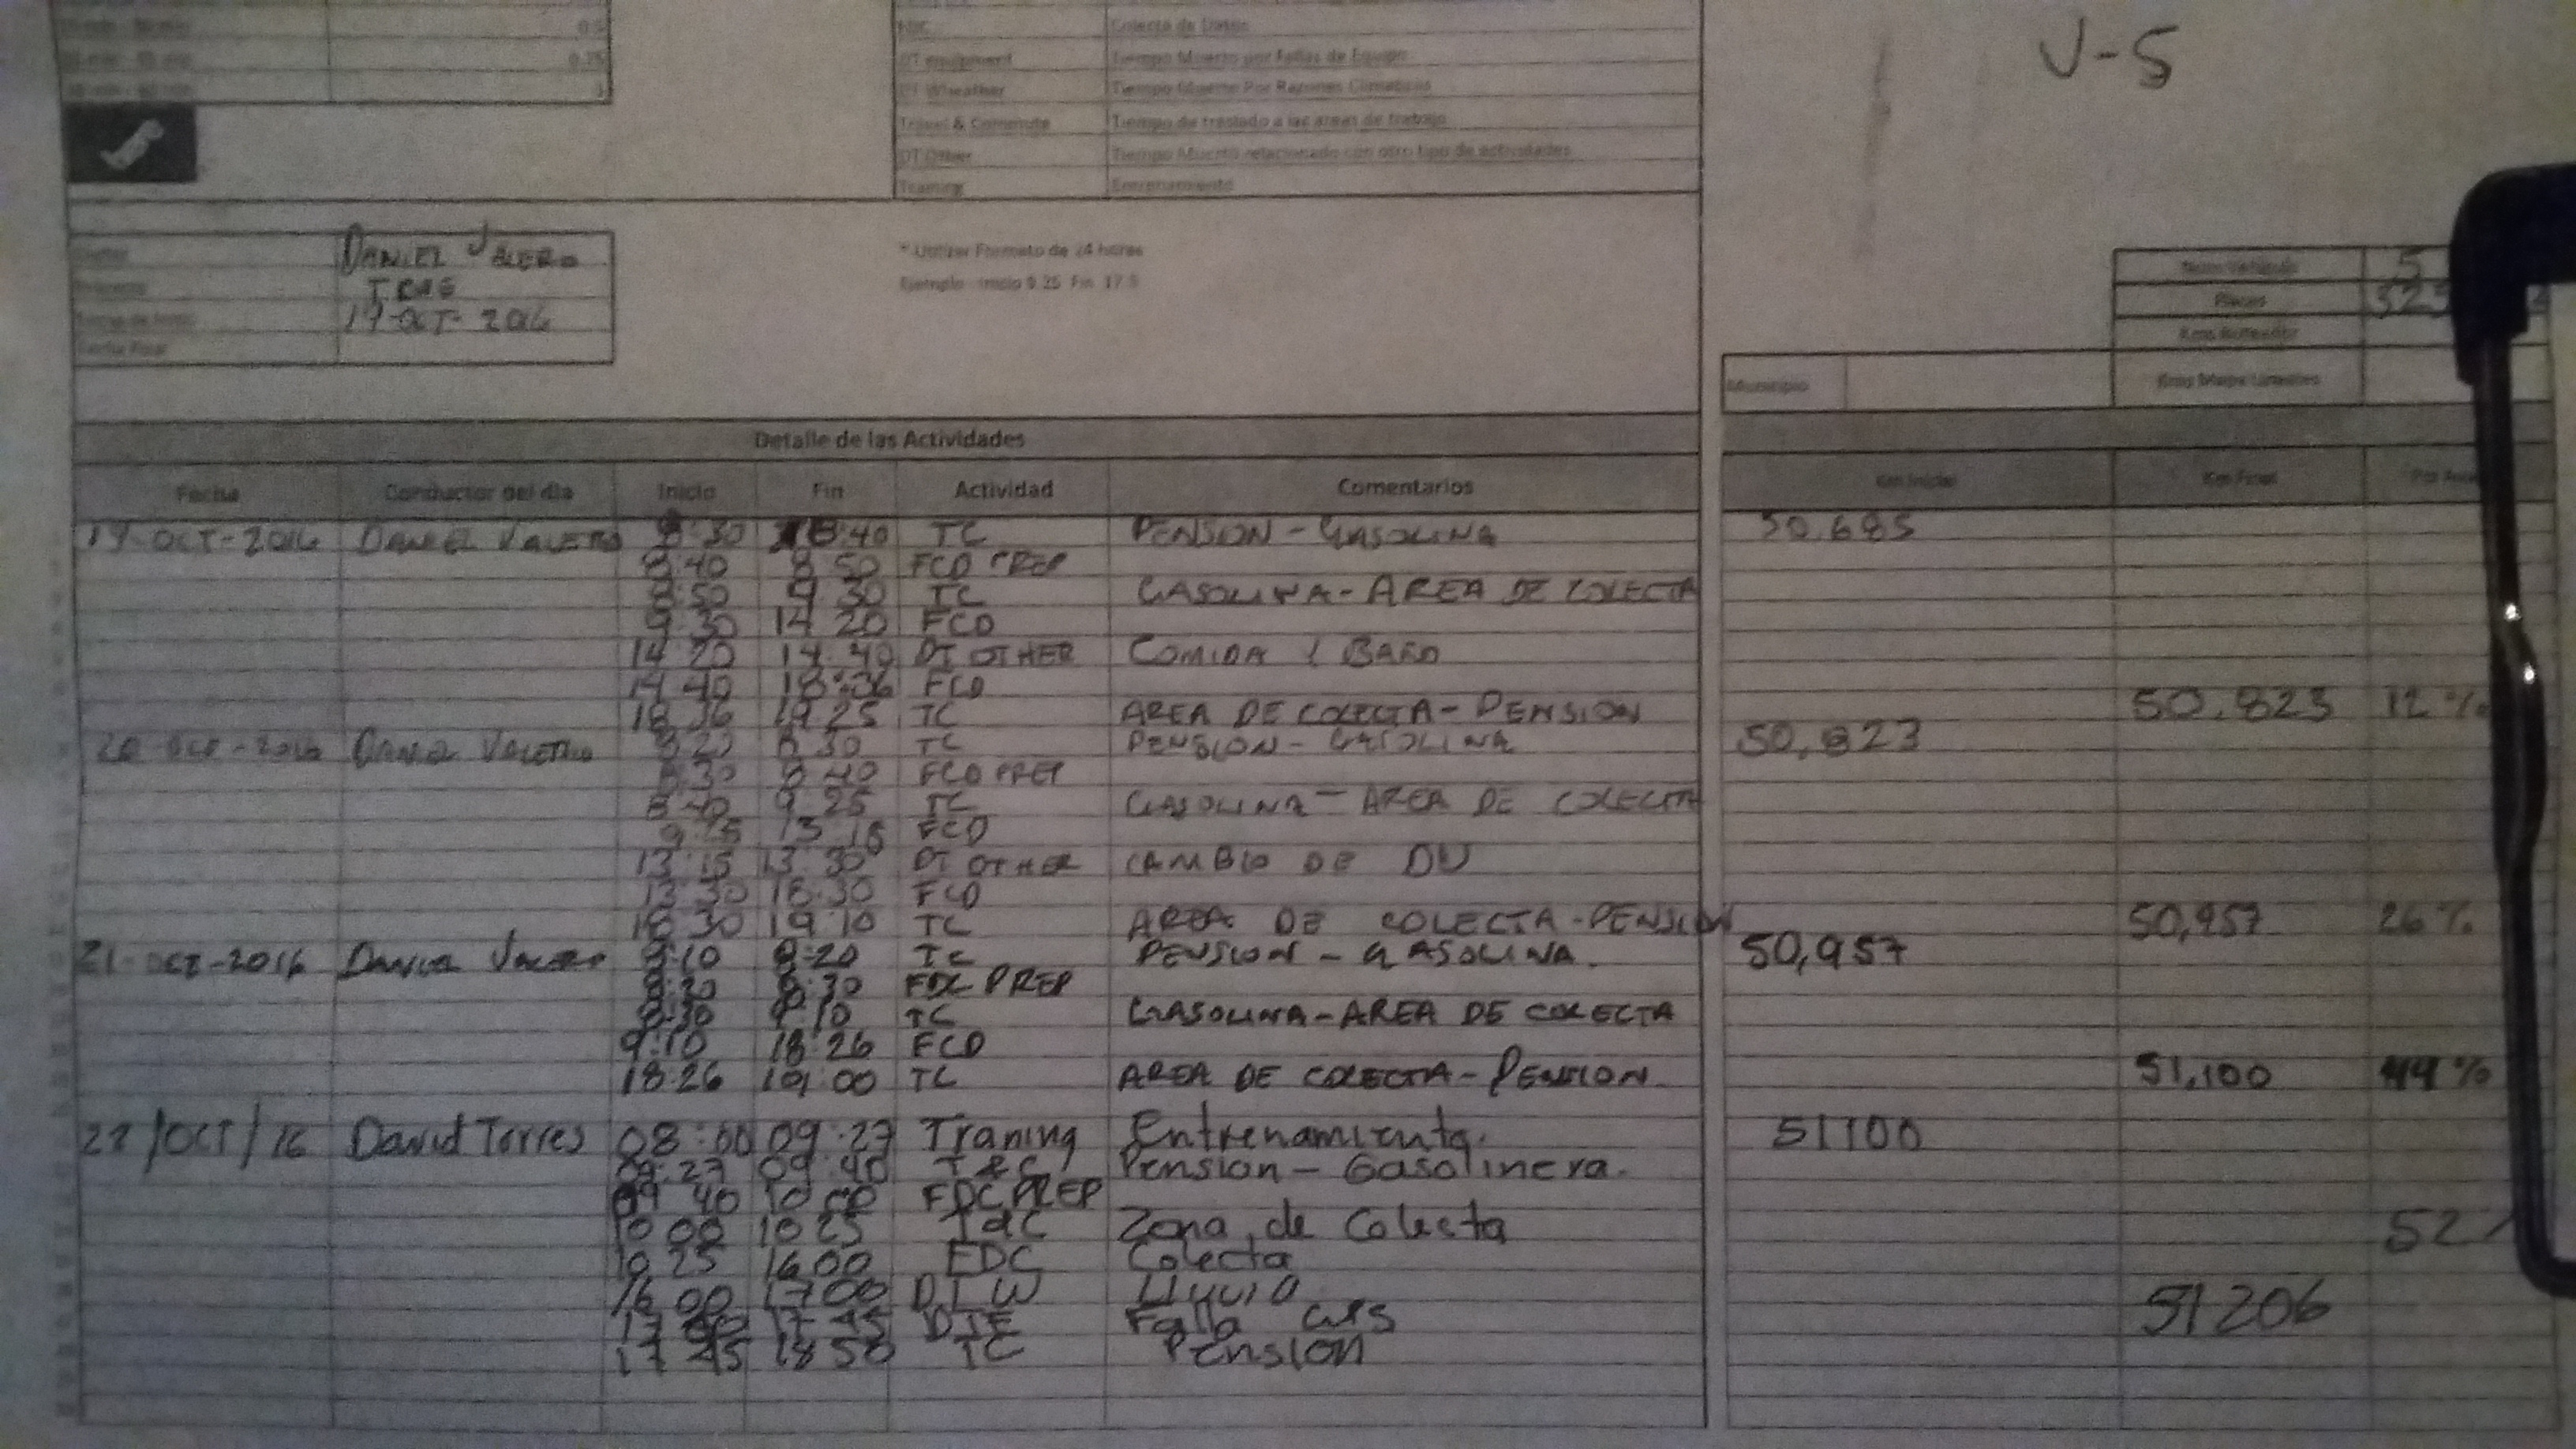 Colecta de Datos
V-5
0.5
DT equipment Tiempo Muerto por Fallas de Equipo
0.75
DT Wheather Tiempo Muerto Por Razones Climaticas
Travel & Commute Tiempo de traslado a las areas de trabajo
DT Other Tiempo Muerto relacionado con otro tipo de actividades
Training Entrenamiento
DANIEL VALERO
* Utilizar Formato de 24 horas
Ejemplo: Inicio 9.25 Fin 17.5
Num Vehiculo 5
Placas
OCT- 2016
Fecha Final
Municipio
Detalle de las Actividades
Fecha Conductor del dia Inicio Fin Actividad Comentarios Km Inicial Km Final
OCT-2016 DANIEL VALERO 8:30 8:40 TC PENSION - GASOLINA 50,685
8:40 8:50 FCD PREP
8:50 9 30 TC GASOLINA - AREA DE COLECTA
9 30 14 20 FCD
14 20 14 40 DT OTHER COMIDA Y BAÑO
14 40 18:36 FCD
18 36 19 25 TC AREA DE COLECTA - PENSION 50.823 12%
20 OCT-2016 DANIEL VALERO 8 20 8 30 TC PENSION - GASOLINA 50,823
8 30 8 40 FCD PREP
8 40 9 25 TC GASOLINA - AREA DE COLECTA
9 25 13 15 FCD
13:15 13:30 DT OTHER CAMBIO DE DU
13 30 18:30 FCD
18 30 19 10 TC AREA DE COLECTA - PENSION 50,957 26%
21-OCT-2016 DANIEL VALERO 8:10 8:20 TC PENSION - GASOLINA. 50,957
8:20 8:30 FDC PREP
8:30 9 10 TC GASOLINA - AREA DE COLECTA
9:10 18 26 FCD
18:26 19:00 TC AREA DE COLECTA - PENSION 51,100 44%
22/OCT/16 David Torres 08:00 09:27 Traning Entrenamiento. 51100
09:27 09 40 T&C Pension - Gasolinera.
09 40 10 00 FDC PREP
10 00 10 25 T&C Zona de Colecta 52
10 25 16 00 FDC Colecta
16 00 17 00 DTW Lluvia 51206
17 00 17 45 DTE Falla GPS
17 45 18 50 TC Pension